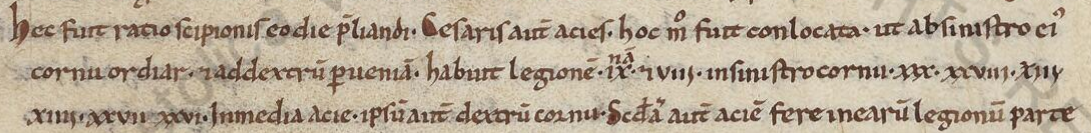 Hec fuit ratio scipionis eo die p̄liandi. Cesaris aut̄ acies. hoc m̊ fuit conlocata. ut ab sinistro ei'
cornu ordiar. ⁊ ad dextrū ꝑueniā. habuit legionē. ix nā. ⁊ viii. in sinistro cornu. xxx. xxviii. xiii
xiiii. xxvii xxvi. In media acie. ipsū aut̄ dextrū cornu. Scd̄a aut̄ aciē fere in earū legionū parte